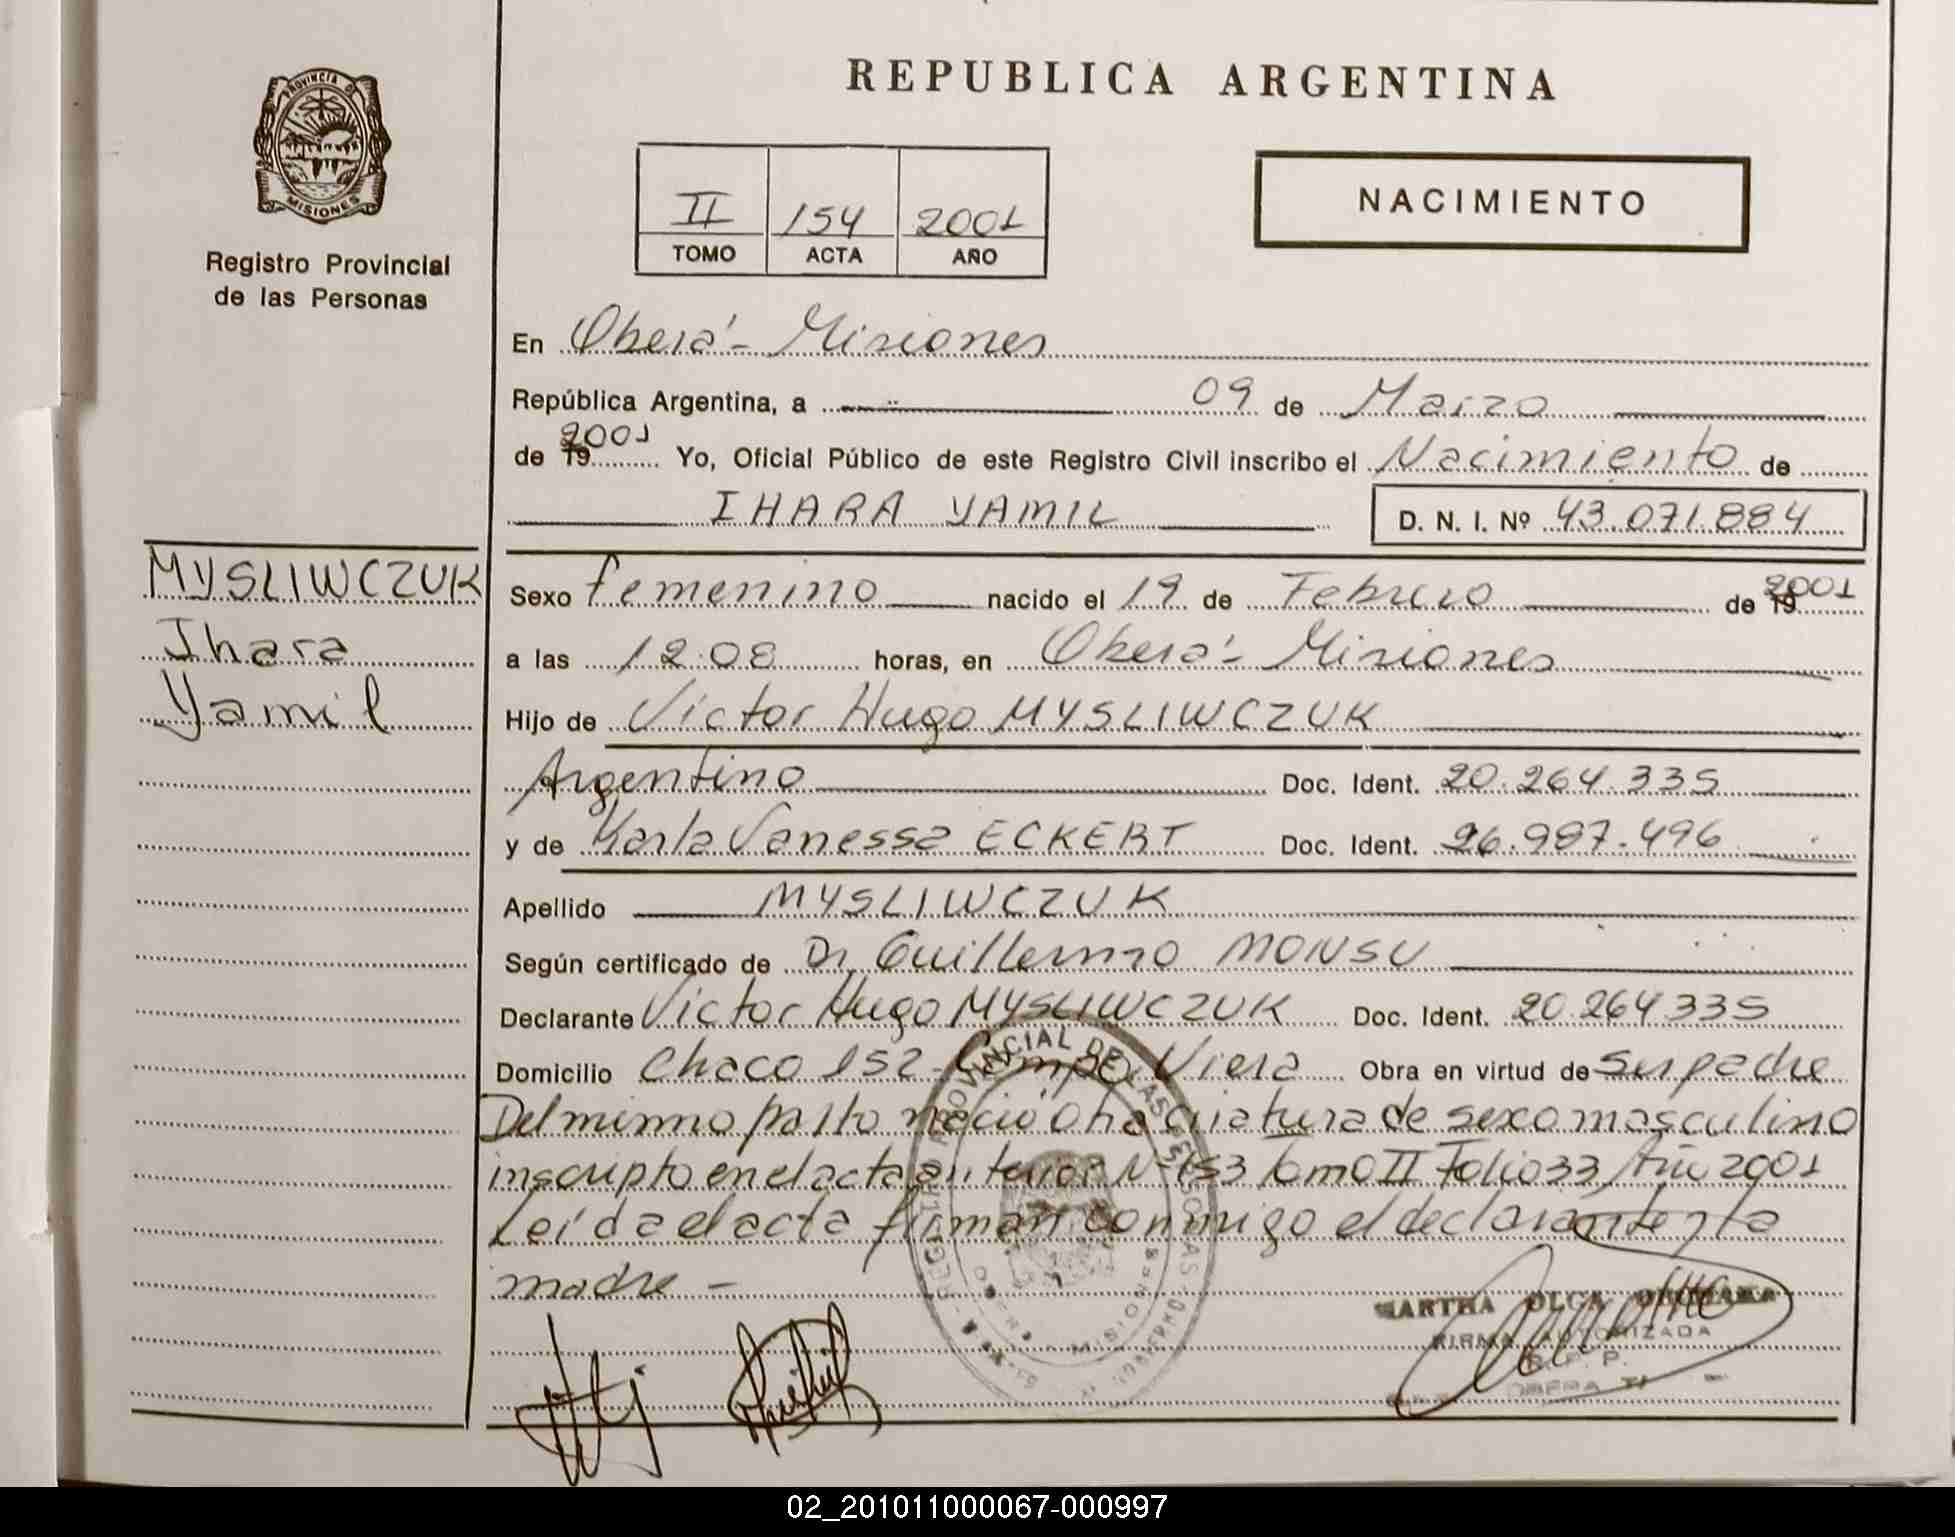 PROVINCIA DE
MISIONES
Registro Provincial
de las Personas
REPUBLICA ARGENTINA
II 154 2001
TOMO ACTA AÑO
NACIMIENTO
En Oberá - Misiones
República Argentina, a 09 de Marzo
de 19 2001 Yo, Oficial Público de este Registro Civil inscribo el Nacimiento de
IHARA YAMIL D. N. I. Nº 43.071.884
MYSLIWCZUK
Ihara
Yamil
Sexo femenino nacido el 19 de Febrero de 19 2001
a las 12.08 horas, en Oberá - Misiones
Hijo de Víctor Hugo MYSLIWCZUK
Argentino Doc. Ident. 20.264.335
y de Karla Vanessa ECKERT Doc. Ident. 26.987.496
Apellido MYSLIWCZUK
Según certificado de Dr. Guillermo MONSU
Declarante Víctor Hugo MYSLIWCZUK Doc. Ident. 20.264.335
Domicilio Chaco 152 - Campo Viera Obra en virtud de ser padre
Del mismo parto nació otra criatura de sexo masculino
inscripto en el acta anterior Nº 153 Tomo II Folio 33 Año 2001
Leída el acta firman conmigo el declarante y la
madre -
MARTHA OLGA
FIRMA AUTORIZADA
R. P. P.
OBERA
02_201011000067-000997